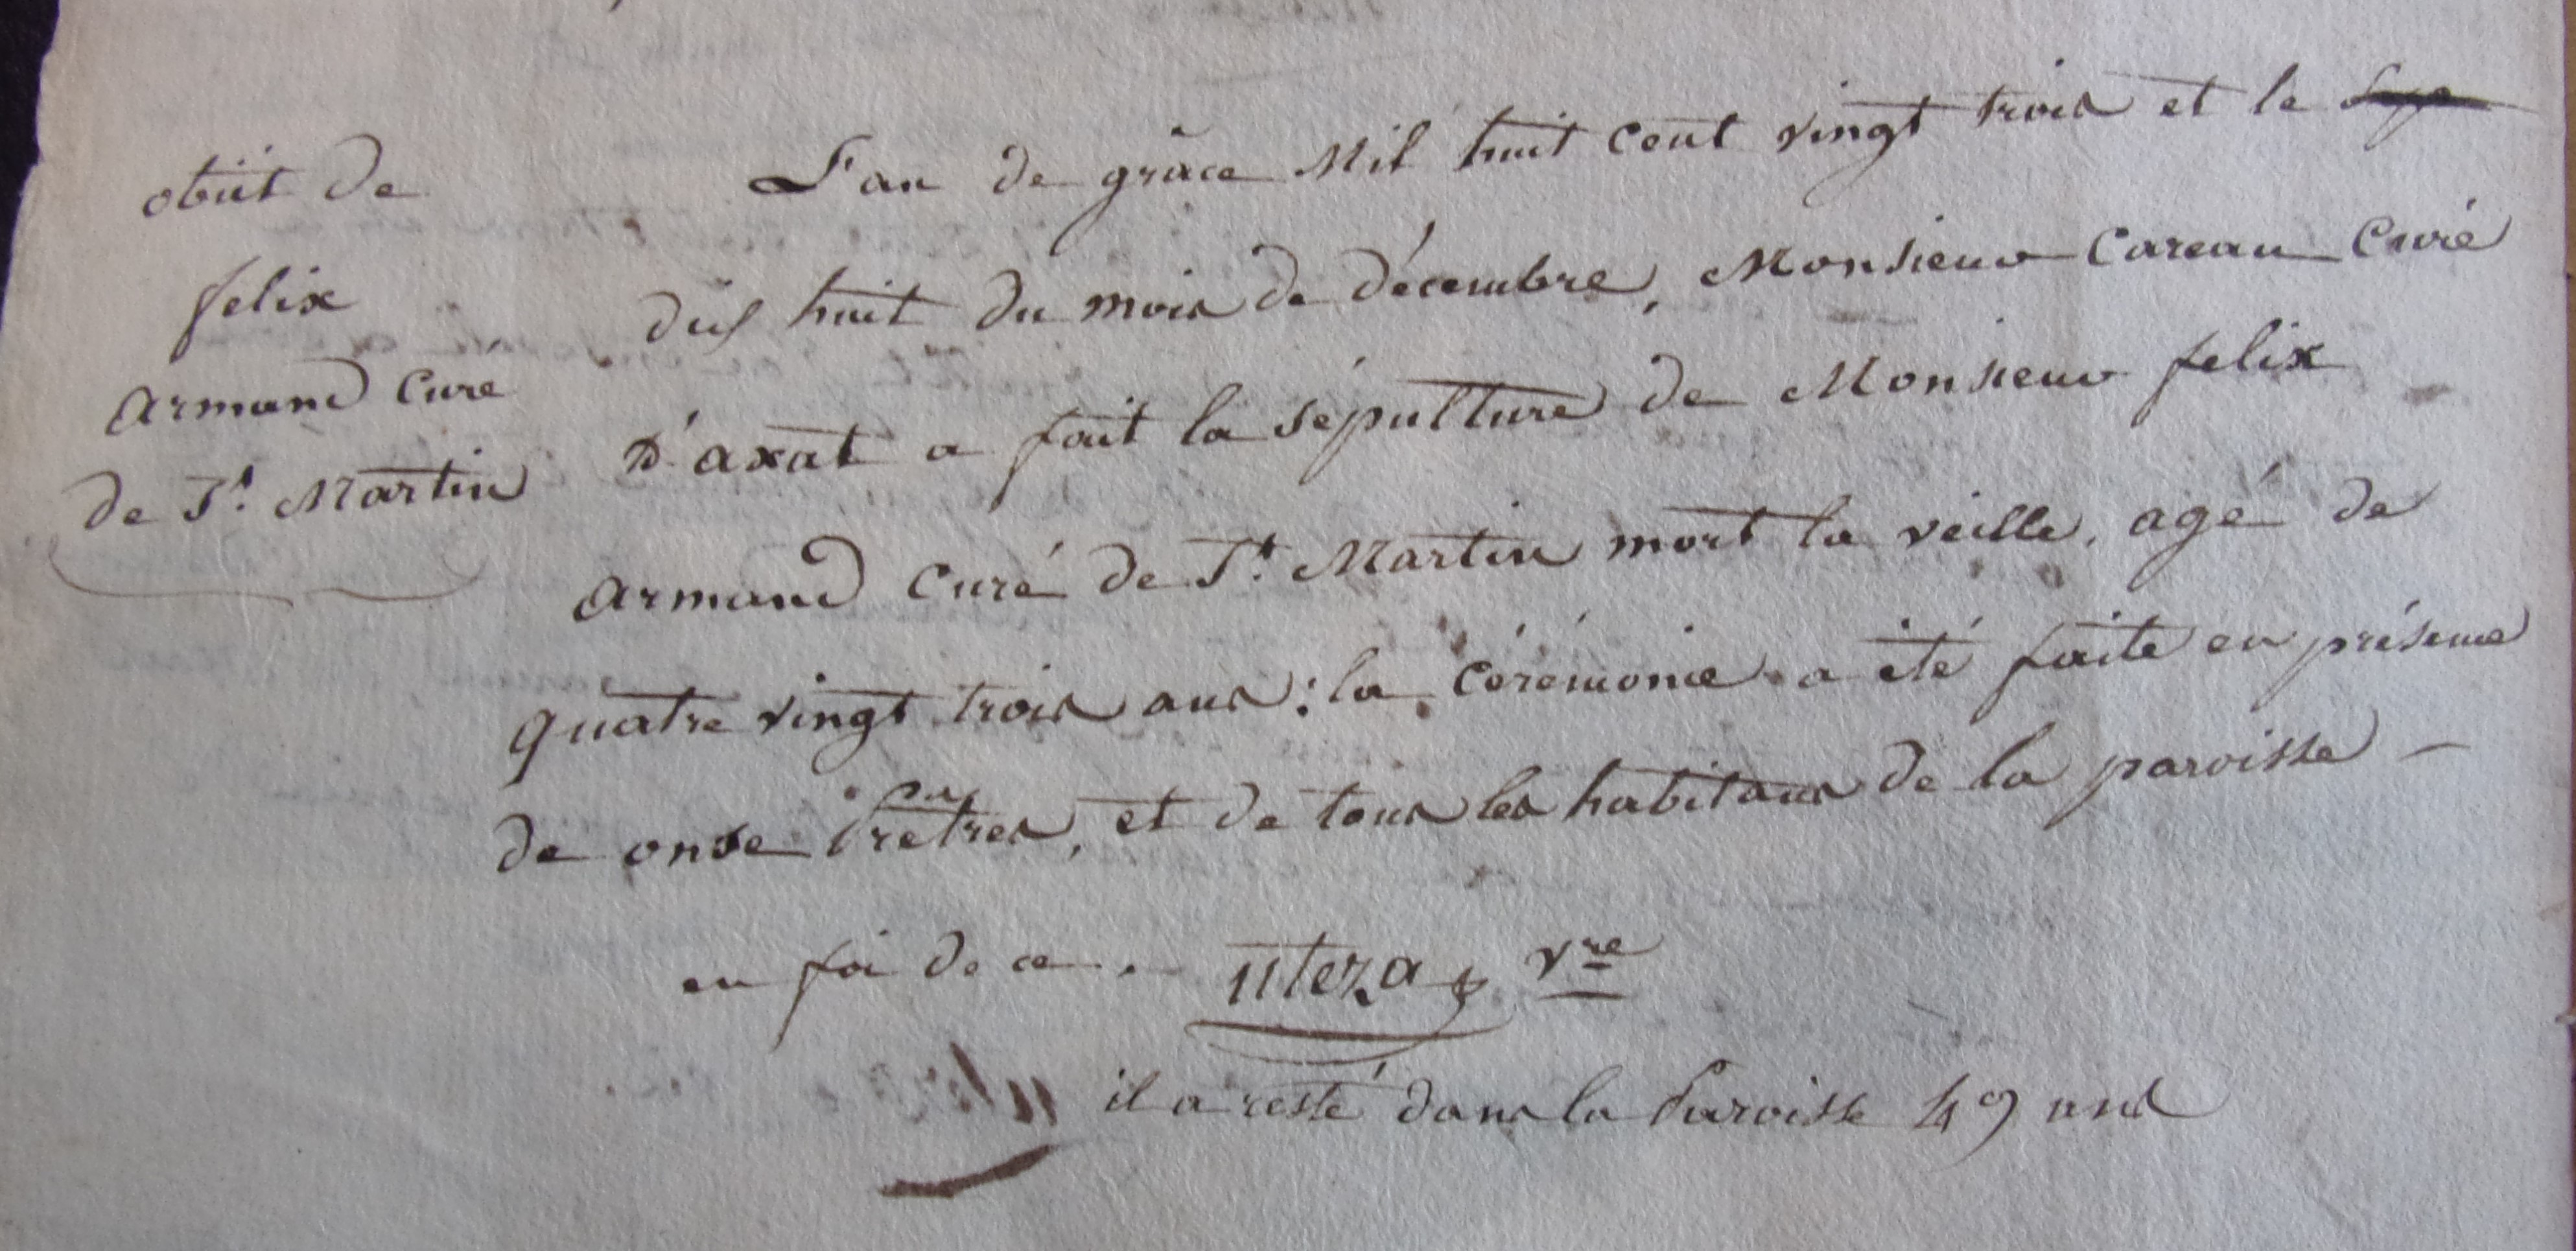 obiit de
felix
armand curé
de St. Martin
L'an de grâce Mil huit cent vingt trois et le
dix huit du mois de décembre, Monsieur Careau Curé
D'axat a fait la sépulture de Monsieur felix
armand curé de St. Martin mort la veille, agé de
quatre vingt trois ans: la cérémonie a été faite en présence
de onze Prêtres, et de tous les habitans de la paroisse -
en foi de ce. uteza vre
il a resté dans la Paroisse 49 ans